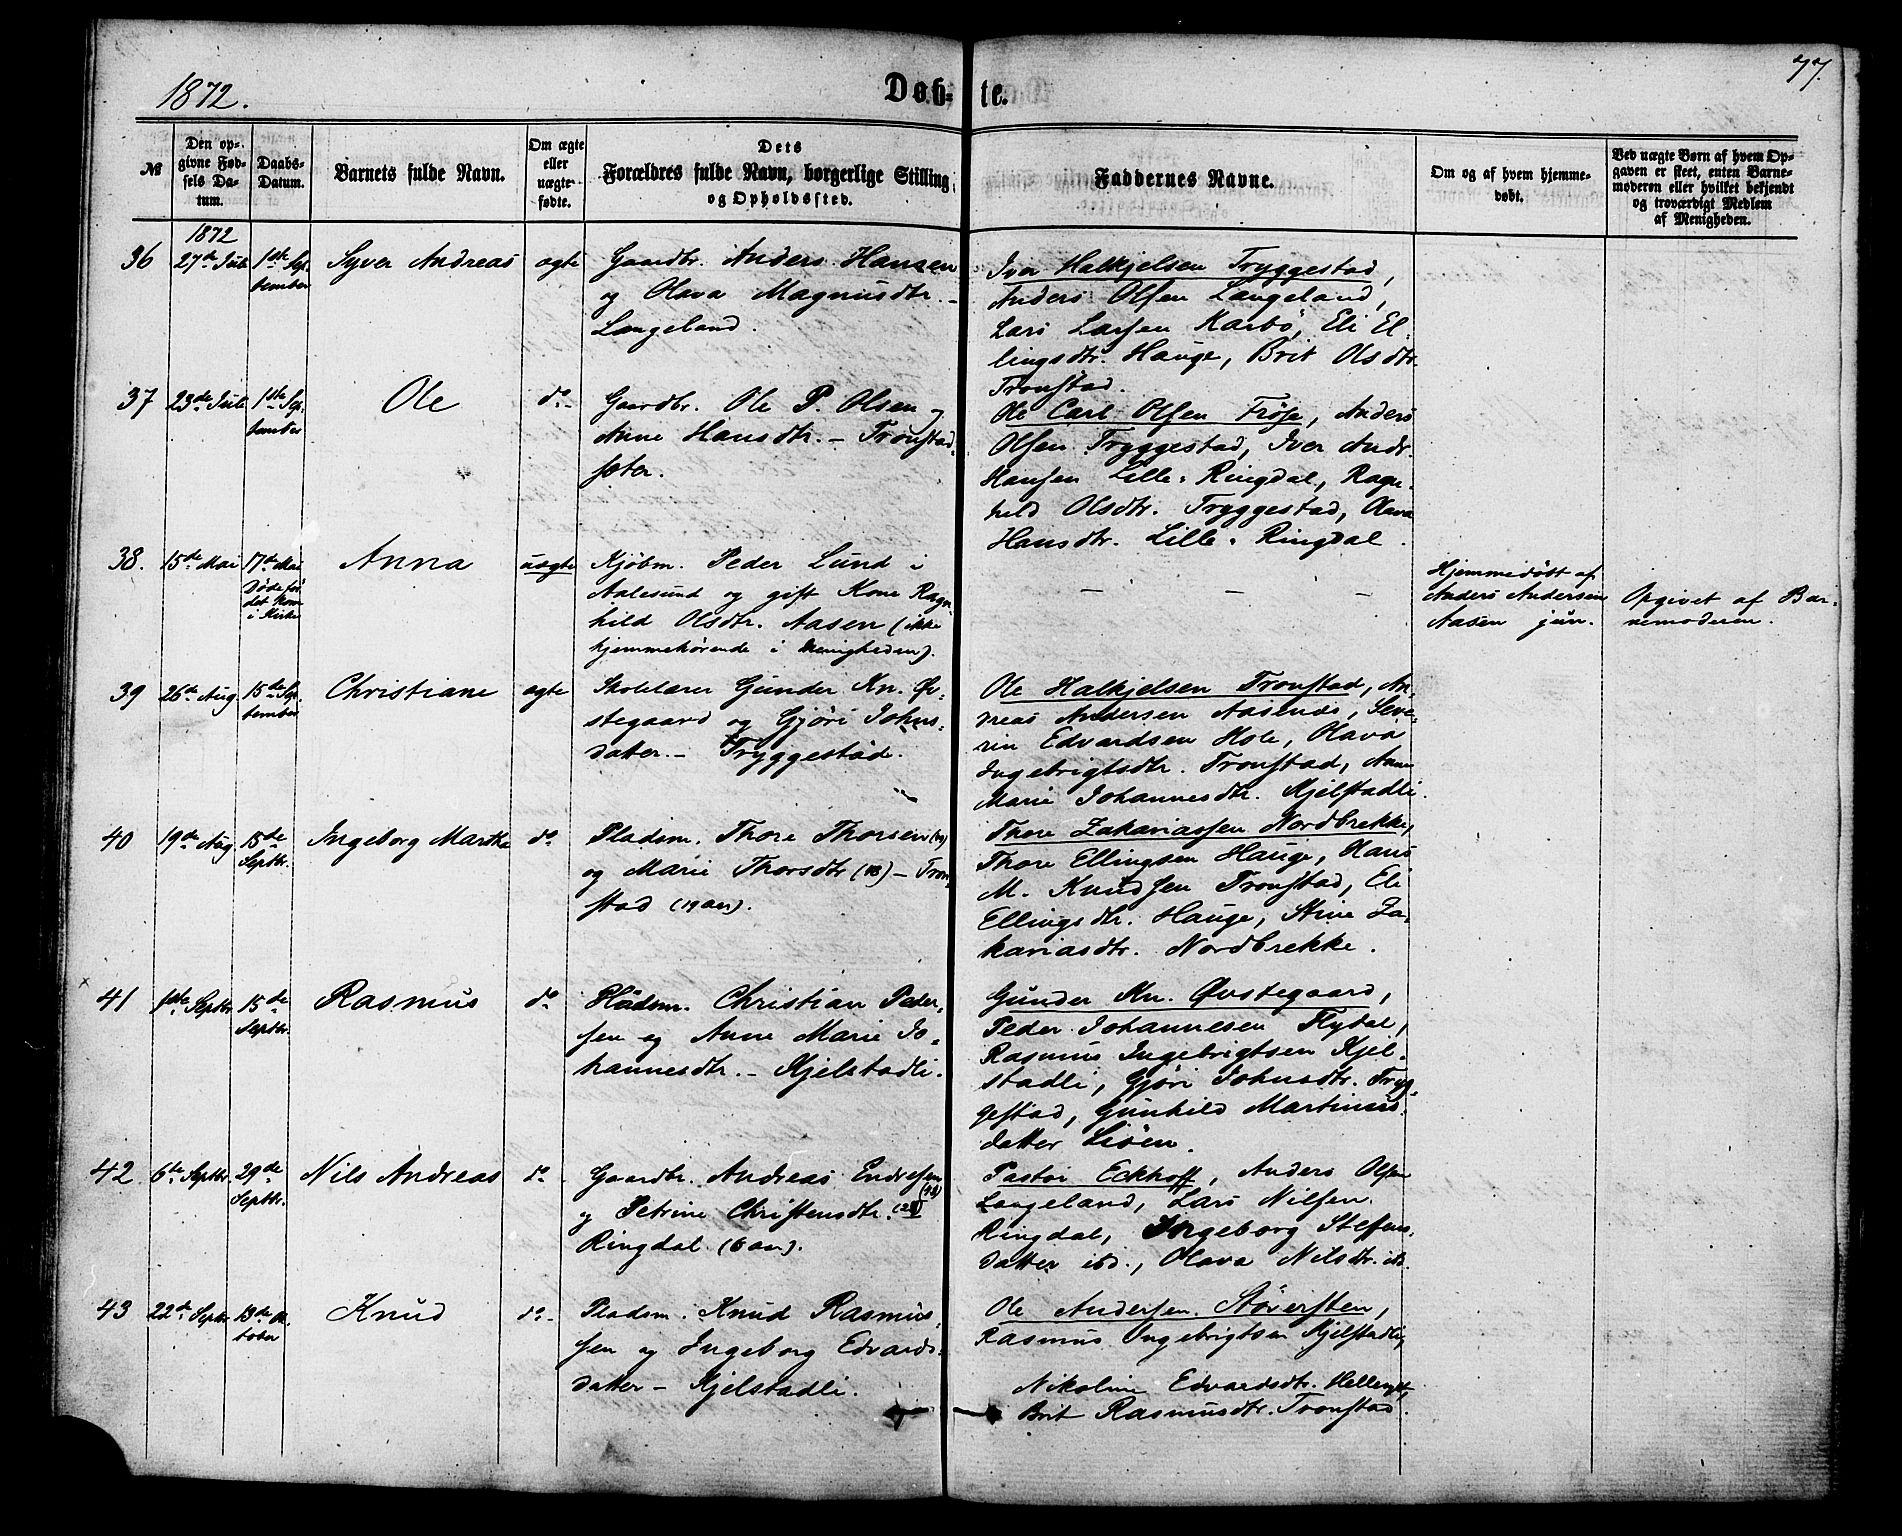 1872.
Døb-
te.
77.
№
Den op-
givne Fød-
sels Da-
tum.
Daabs-
Datum.
Barnets fulde Navn.
Om ægte
eller
uægte
fødte.
Dets
Forældres fulde Navn, borgerlige Stilling
og Opholdssted.
Faddernes Navne.
Om og af hvem hjemme-
døbt.
Ved uægte Børn af hvem Op-
gaven er skeet, enten Barne-
moderen eller hvilket bekjendt
og troværdigt Medlem
af Menigheden.
1872
36
27de Juli
1ste Sep-
tember
Syver Andreas
ægte
Gaardbr. Anders Hansen
og Olava Magnusdtr. –
Langeland.
Iver Halkjelsen Tryggestad,
Anders Olsen Langeland,
Lars Larsen Karbö, Eli El-
lingsdtr. Hauge, Brit Olsdtr.
Tronstad.
37
23de Juli
1ste Sep-
tember
Ole
do –
Gaardbr. Ole P. Olsen og
Anne Hansdtr. – Tronstad-
sæter.
Ole Carl Olsen Fröse, Anders
Olsen Tryggestad, Iver Andr.
Hansen Lille-Ringdal, Ragn-
hild Olsdtr. Tryggestad, Olava
Hansdtr. Lille-Ringdal.
38.
15de Mai
17de Mai
Döde för
det kom
i Kirke
Anna
uægte
Kjöbm. Peder Lund i
Aalesund og gift Kone Ragn-
hild Olsdtr. Aasen (ikke
hjemmehörende i Menigheden).
– – – –
Hjemmedöbt af
Anders Andersen
Aasen jun.
Opgivet af Bar-
nemoderen.
39
26de Aug
15de Sep-
tember
Christiane
ægte
Skolelærer Gunder Kn. Øv-
stegaard og Gjöri Johns-
datter. – Tryggestad.
Ole Halkjelsen Tronstad, An-
dreas Andersen Aasenæs, Seve-
rin Edvardsen Hole, Olava
Ingebrigtsdtr. Tronstad, Anne
Marie Johannesdtr. Kjelstadli.
40
19de Aug
15de
Septbr.
Ingeborg Marthe
do
Pladsm. Thore Thorsen
og Marie Thorsdtr – Tron-
stad (19 an).
Thore Zakariassen Nordbrekke,
Thore Ellingsen Hauge, Hans
M. Knudsen Tronstad, Eli
Ellingsdtr. Hauge, Stine Za-
kariasdtr. Nordbrekke.
41
1ste Septbr.
15de
Septbr.
Rasmus
do
Pladsm. Christian Peder-
sen og Anne Marie Jo-
hannesdtr. – Kjelstadli.
Gunder Kn. Øvstegaard,
Peder Johannesen Flydal,
Rasmus Ingebrigtsen Kjel-
stadli, Gjöri Johnsdtr. Tryg-
gestad, Gunhild Martinus-
datter Liöen.
42
6te Septbr.
29de
Septbr.
Nils Andreas
do
Gaardbr. Andreas Endresen
og Petrine Christensdtr.
Ringdal. (6 an).
Pastor Eckhoff, Anders Olsen
Langeland, Lars Nilsen
Ringdal, Ingeborg Steffens-
datter ibd., Olava Nilsdtr. ibd.
43
22de Septbr
13de Ok-
tober
Knud
do –
Pladsm. Knud Rasmus-
sen og Ingeborg Edvards-
datter – Kjelstadli.
Ole Andersen Stöversten,
Rasmus Ingebrigtsen Kjelstadli,
Nikoline Edvardsdtr. Hellesylt,
Brit Rasmusdtr. Tronstad.